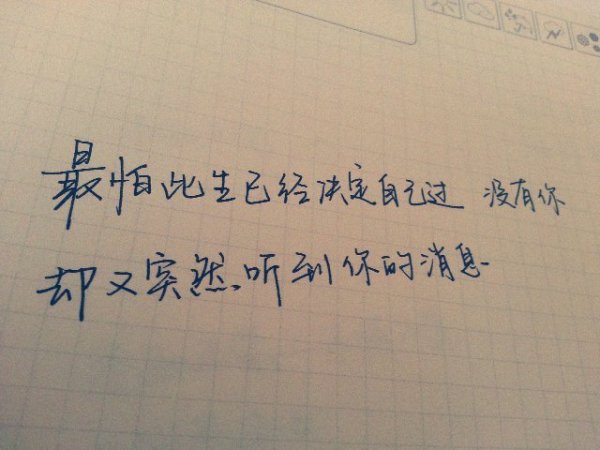 最怕此生已经决定自己过 没有你
却又突然听到你的消息